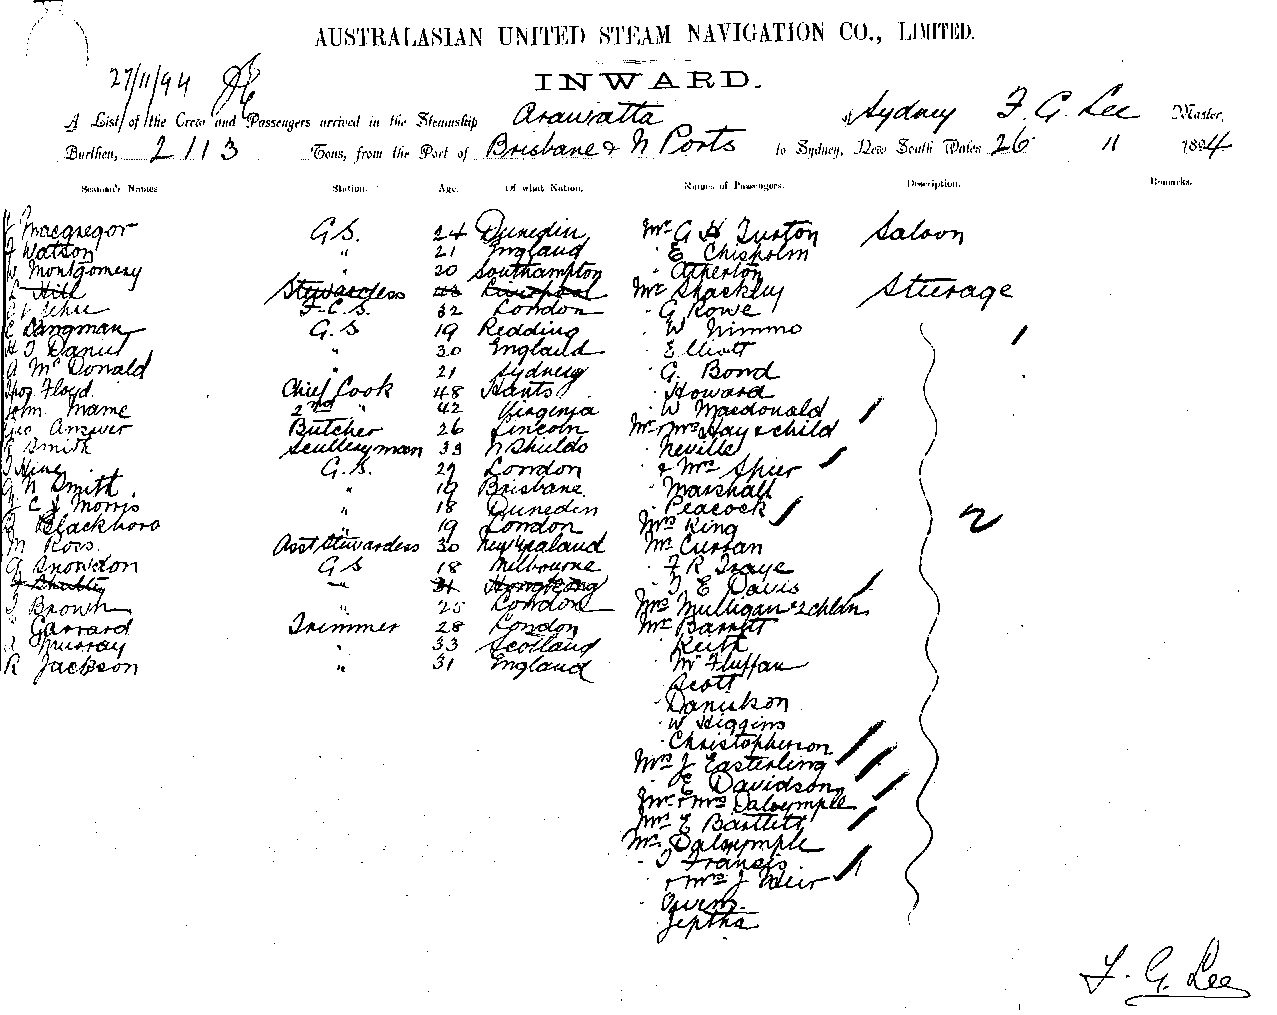 AUSTRALASIAN UNITED STEAM NAVIGATION CO., LIMITED.
27/11/94
INWARD.
A List of the Crew and Passengers arrived in the Steamship Arawatta of Sydney F. G. Lee Master,
Burthen, 2113 Tons, from the Port of Brisbane & N Ports to Sydney, New South Wales 26 11 1894
Seamen's Names Station. Age. Of what Nation. Names of Passengers. Description. Remarks.
Macgregor G.S. 24 Dunedin Mr G H Turton Saloon
Watson " 21 England " E Chisholm
W Montgomery " 20 Southampton " Atherton
Hill Stewardess Liverpool Mr Shackley Steerage
F.C.S. 32 London " G Rowe
E Dangman G.S 19 Redding " W Nimmo
H J Daniel " 30 England " Elliott
A McDonald " 21 Sydney " G. Bond
Thos Floyd Chief Cook 48 Hants " Howard
John Mame 2nd " 42 Virginia " W Macdonald
Geo Answer Butcher 26 Lincoln Mr & Mrs Hay & child
Smith Sculleryman 33 N Shields " Neville
Hine G.S. 29 London " & Mrs Spier
N Smith " 19 Brisbane " Marshall
C J Morris " 18 Dunedin " Peacock
Blackboro " 19 London Mrs King
M Ross Asst Stewardess 30 New Zealand Mr Curran
G Snowdon G S 18 Melbourne " F R Traye
31 Hongkong " J E Davis
J Brown " 25 London Mrs Mulligan & 2 chldn
Garrard Trimmer 28 London Mr Barrett
Murray " 33 Scotland " Keith
R Jackson " 31 England " McFluffan
" Scott
" Danielson
" W Higgins
" Christopherson
Mrs J Easterling
" E Davidson
Mr & Mrs Dalrymple
Mrs E Bartlett
Mr Dalrymple
" J Francis
" & Mrs J Weir
" Owens
" Jeptha
2
F. G. Lee